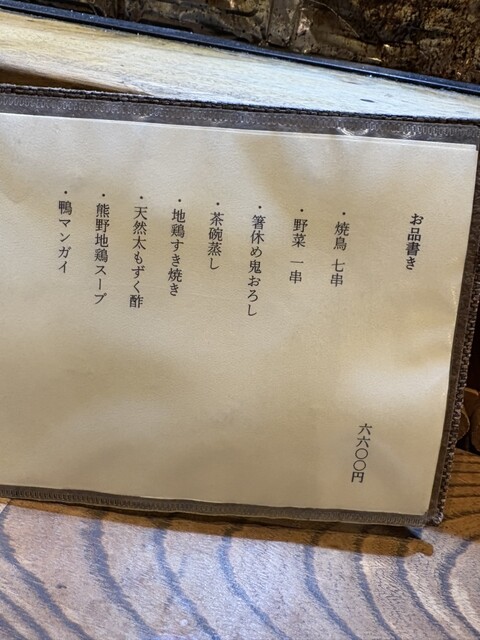 お品書き
六六〇〇円
・焼鳥 七串
・野菜 一串
・箸休め鬼おろし
・茶碗蒸し
・地鶏すき焼き
・天然太もずく酢
・熊野地鶏スープ
・鴨マンガイ